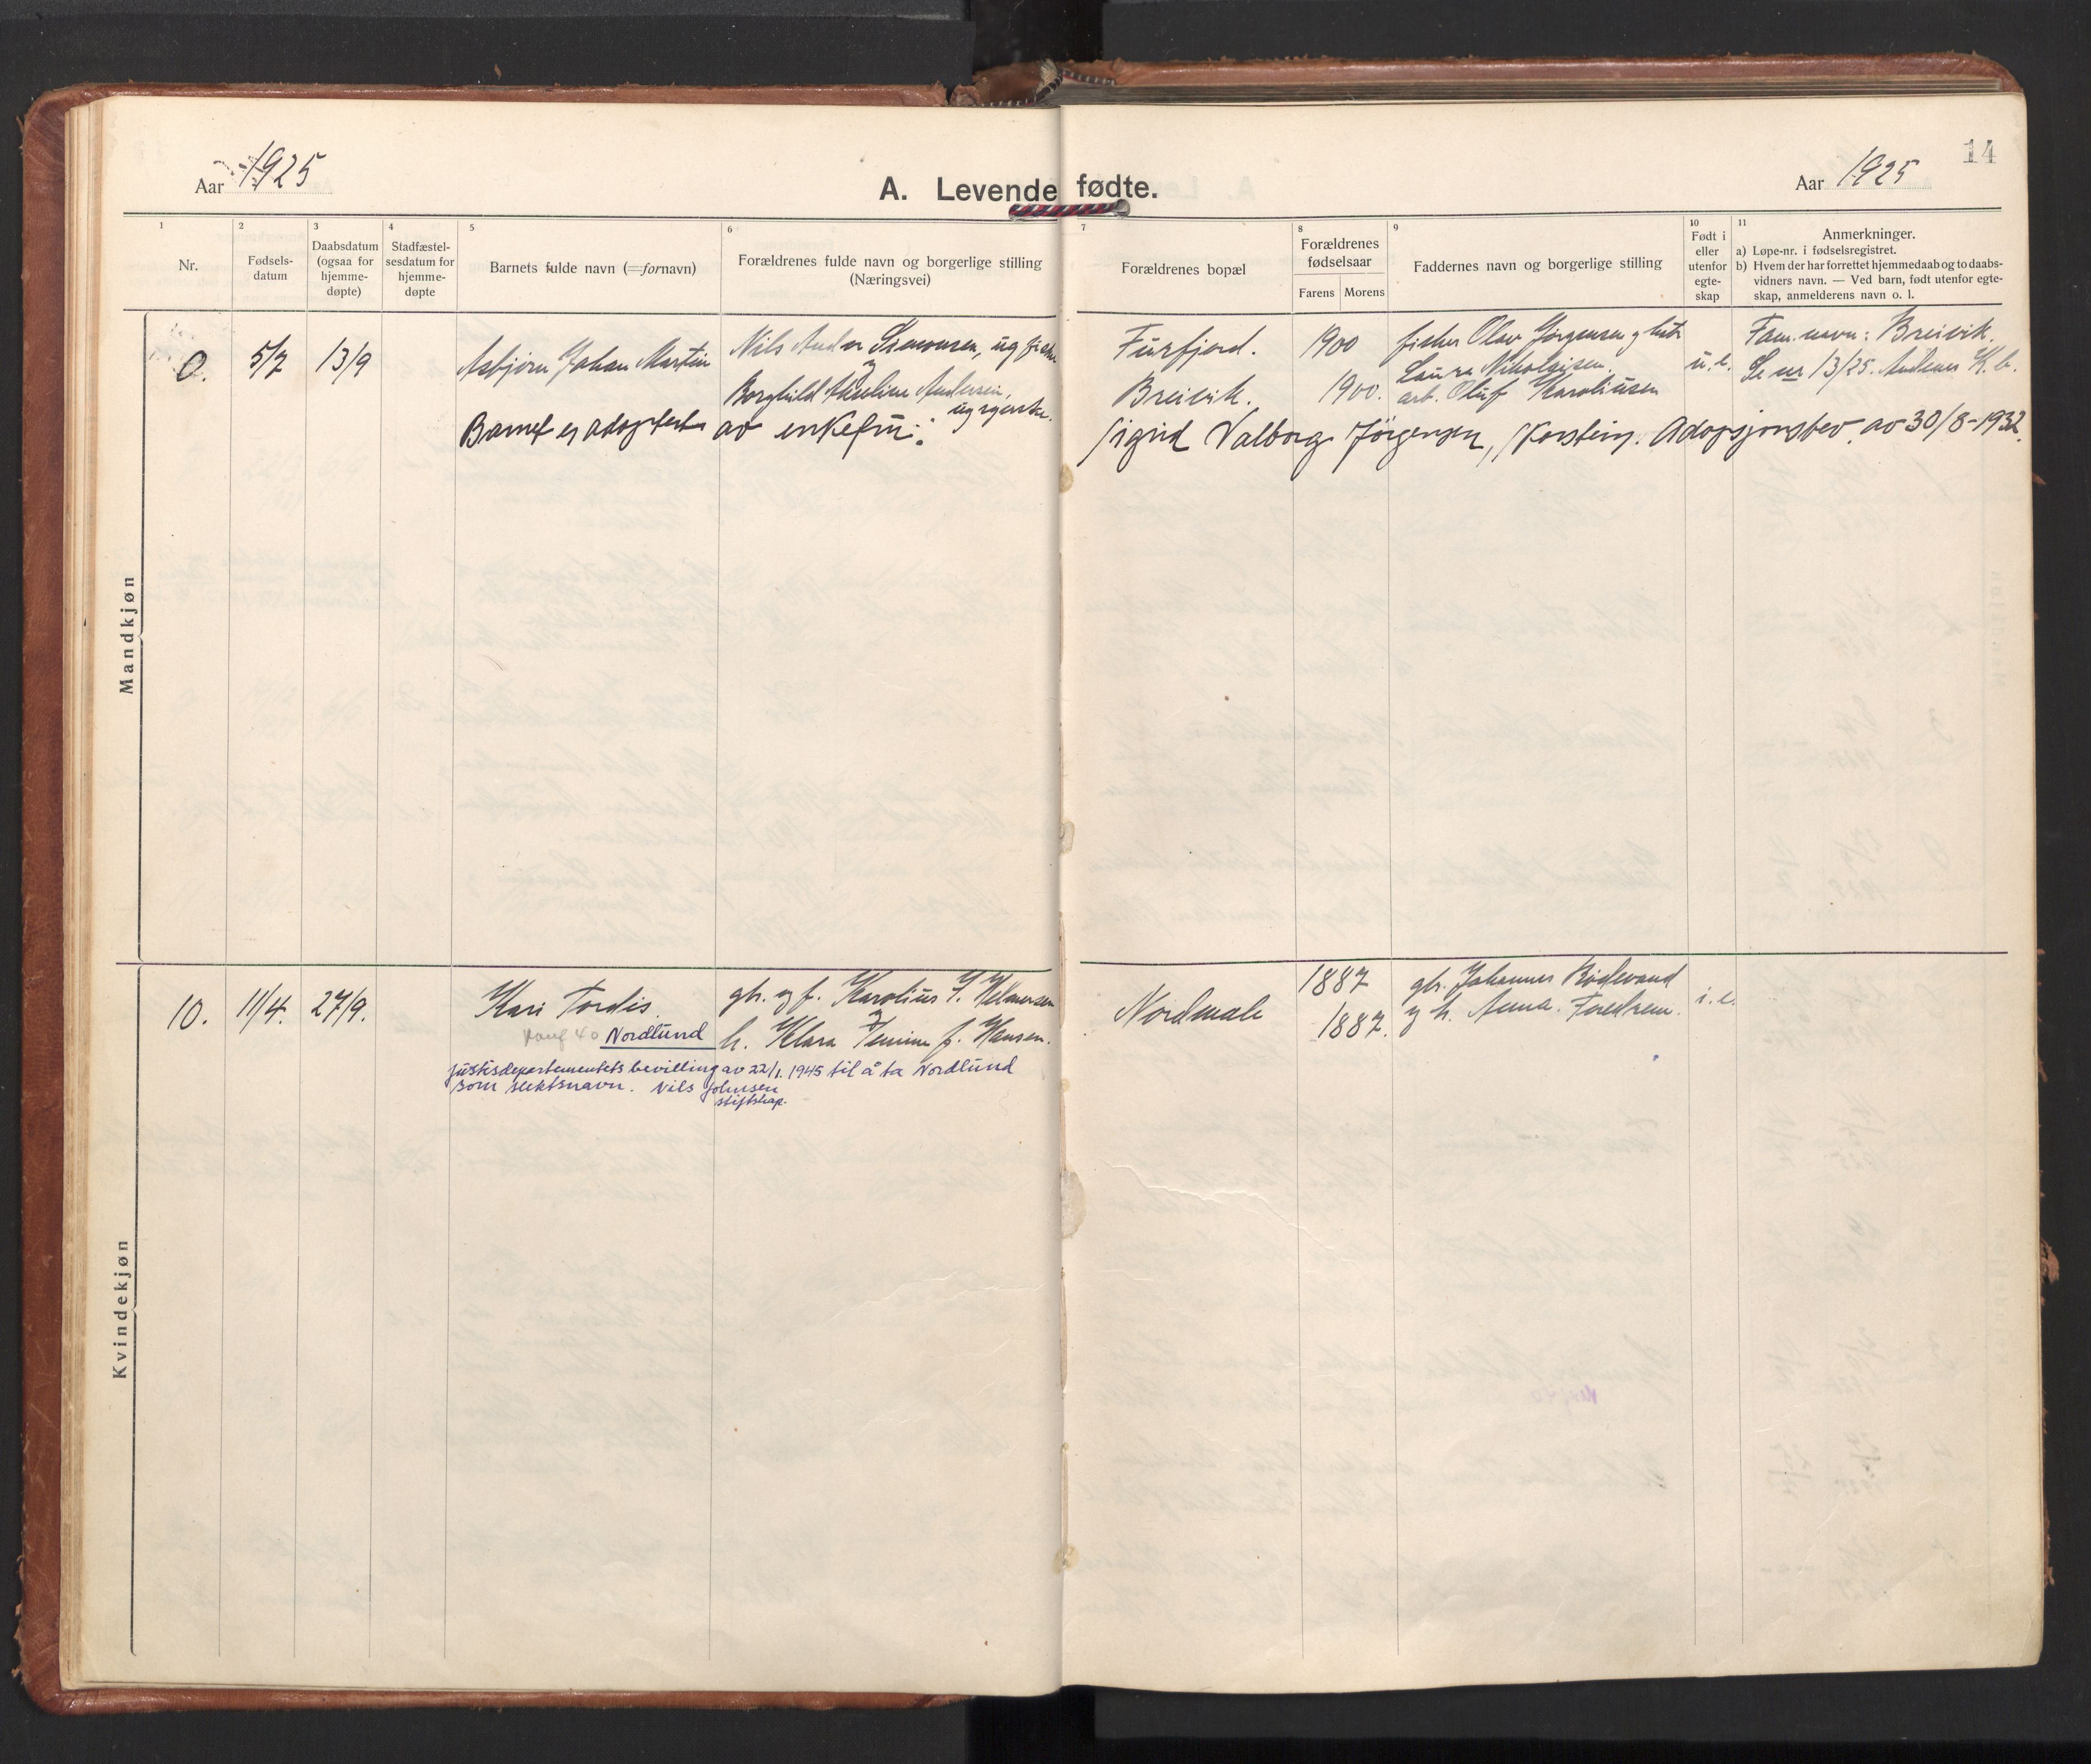 Aar 1925
A. Levende fødte.
Aar 1925
14
1
2
3
4
5
6
7
8
9
10
11
Nr.
Fødsels-
datum
Daabsdatum
(ogsaa for
hjemme-
døpte)
Stadfæstel-
sesdatum for
hjemme-
døpte
Barnets fulde navn (=fornavn)
Forældrenes fulde navn og borgerlige stilling
(Næringsvei)
Forældrenes bopæl
Forældrenes
fødselsaar
Farens Morens
Faddernes navn og borgerlige stilling
Født i
eller
utenfor
egte-
skap
Anmerkninger.
a) Løpe-nr. i fødselsregistret.
b) Hvem der har forrettet hjemmedaab og to daabs-
vidners navn. — Ved barn, født utenfor egte-
skap, anmelderens navn o. l.
Mandkjøn
0. 5/7 13/9 Asbjørn Johan Martin
Nils Simonsen, ug fisker
og
Borghild Andersen,
ug
Furfjord.
Breivik.
1900
1900.
fisker Olav Jørgensen og hustr
Laura Nikolaisen.
arb. Oluf Karoliusen
u. e.
Fam.navn: Breivik.
Se nr 13/25. Andenes K. b.
Barnet er adoptert av enkefru: Sigrid Valborg Jørgensen, Adopsjonsbev. av 30/8-1932.
Kvindekjøn
10. 11/4. 27/9. Kari Tordis.
40 Nordlund
gbr. og f. Karolius J. Helmersen
og
h. Klara f. Hansen.
Nordmæle
1887
1887.
gbr. Johannes Bødevand
og h. Anna.
i. e.
Justisdepartementets bevilling av 22/1. 1945 til å ta Nordlund
som slektsnavn. Nils Johnsen
stiftskap.